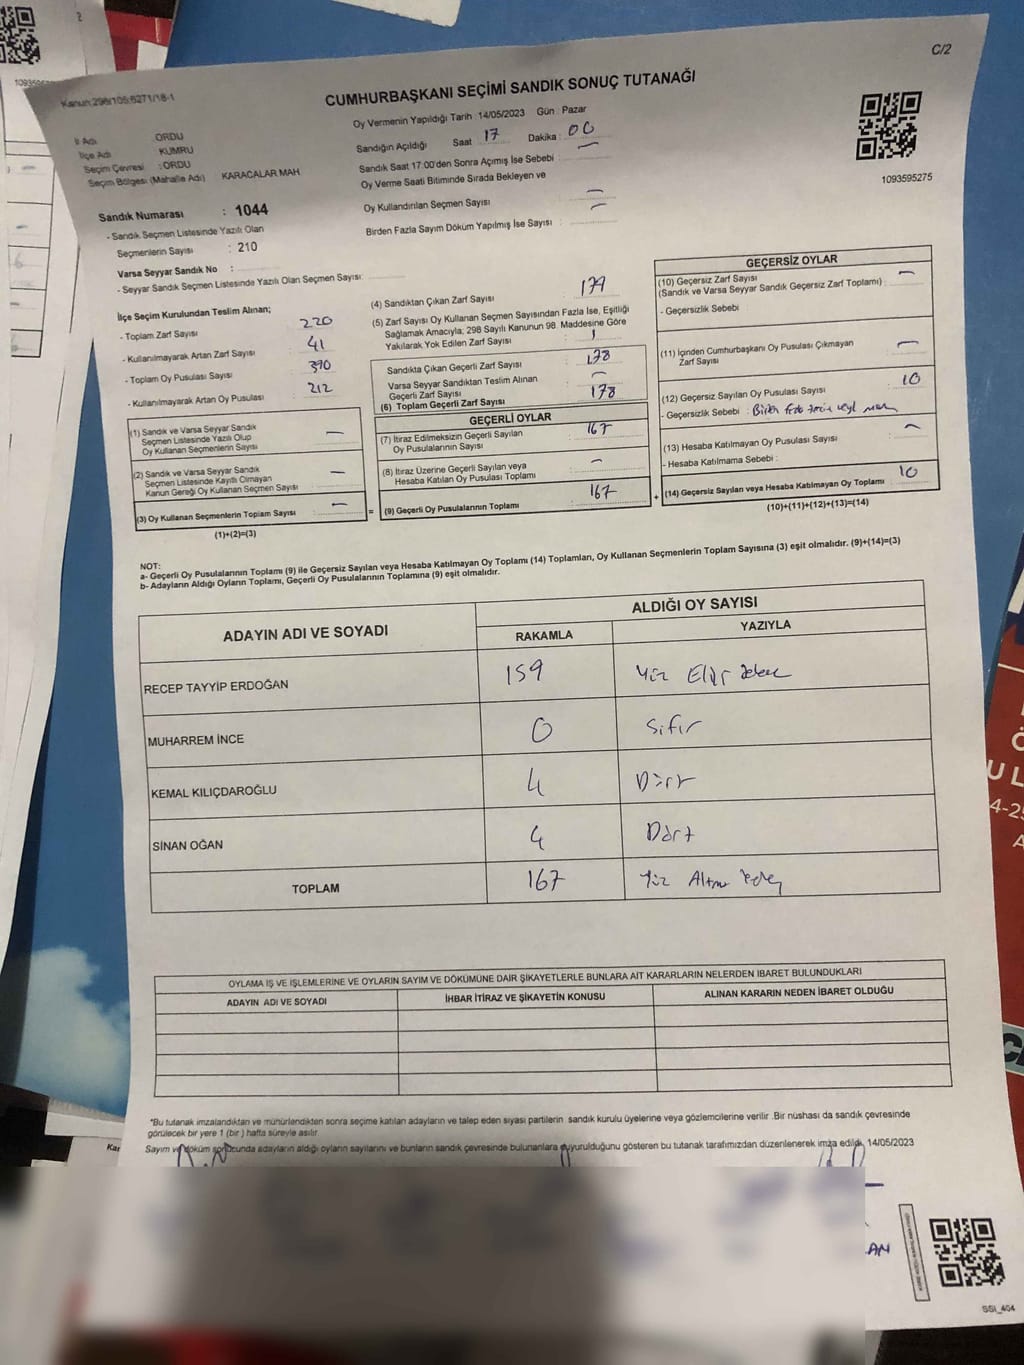 C/2
Kanun:298/105;6271/18-1
CUMHURBAŞKANI SEÇİMİ SANDIK SONUÇ TUTANAĞI
1093595275
İl Adı ORDU
İlçe Adı KUMRU
Seçim Çevresi : ORDU
Seçim Bölgesi (Mahalle Adı) KARACALAR MAH
Sandık Numarası : 1044
- Sandık Seçmen Listesinde Yazılı Olan
Seçmenlerin Sayısı : 210
Varsa Seyyar Sandık No :
- Seyyar Sandık Seçmen Listesinde Yazılı Olan Seçmen Sayısı:
Oy Vermenin Yapıldığı Tarih : 14/05/2023 Gün : Pazar
Sandığın Açıldığı Saat 17 Dakika : 00
Sandık Saat 17:00'den Sonra Açımış İse Sebebi : —
Oy Verme Saati Bitiminde Sırada Bekleyen ve
Oy Kullandırılan Seçmen Sayısı —
Birden Fazla Sayım Döküm Yapılmış İse Sayısı : —
İlçe Seçim Kurulundan Teslim Alınan;
- Toplam Zarf Sayısı 220
- Kullanılmayarak Artan Zarf Sayısı 41
- Toplam Oy Pusulası Sayısı 390
- Kullanılmayarak Artan Oy Pusulası 212
(1) Sandık ve Varsa Seyyar Sandık
Seçmen Listesinde Yazılı Olup
Oy Kullanan Seçmenlerin Sayısı —
(2) Sandık ve Varsa Seyyar Sandık
Seçmen Listesinde Kayıtlı Olmayan
Kanun Gereği Oy Kullanan Seçmen Sayısı —
(3) Oy Kullanan Seçmenlerin Toplam Sayısı : — =
(1)+(2)=(3)
(4) Sandıktan Çıkan Zarf Sayısı : 179
(5) Zarf Sayısı Oy Kullanan Seçmen Sayısından Fazla İse, Eşitliği
Sağlamak Amacıyla; 298 Sayılı Kanunun 98. Maddesine Göre
Yakılarak Yok Edilen Zarf Sayısı : 1
Sandıkta Çıkan Geçerli Zarf Sayısı : 178
Varsa Seyyar Sandıktan Teslim Alınan
Geçerli Zarf Sayısı : —
(6) Toplam Geçerli Zarf Sayısı : 178
GEÇERLİ OYLAR
(7) İtiraz Edilmeksizin Geçerli Sayılan
Oy Pusulalarının Sayısı : 167
(8) İtiraz Üzerine Geçerli Sayılan veya
Hesaba Katılan Oy Pusulası Toplamı : —
(9) Geçerli Oy Pusulalarının Toplamı : 167 +
GEÇERSİZ OYLAR
(10) Geçersiz Zarf Sayısı
(Sandık ve Varsa Seyyar Sandık Geçersiz Zarf Toplamı) : —
- Geçersizlik Sebebi
(11) İçinden Cumhurbaşkanı Oy Pusulası Çıkmayan
Zarf Sayısı : —
(12) Geçersiz Sayılan Oy Pusulası Sayısı : 10
- Geçersizlik Sebebi :
(13) Hesaba Katılmayan Oy Pusulası Sayısı : —
- Hesaba Katılmama Sebebi :
(14) Geçersiz Sayılan veya Hesaba Katılmayan Oy Toplamı : 10
(10)+(11)+(12)+(13)=(14)
NOT:
a- Geçerli Oy Pusulalarının Toplamı (9) ile Geçersiz Sayılan veya Hesaba Katılmayan Oy Toplamı (14) Toplamları, Oy Kullanan Seçmenlerin Toplam Sayısına (3) eşit olmalıdır. (9)+(14)=(3)
b- Adayların Aldığı Oyların Toplamı, Geçerli Oy Pusulalarının Toplamına (9) eşit olmalıdır.
ADAYIN ADI VE SOYADI ALDIĞI OY SAYISI
RAKAMLA YAZIYLA
RECEP TAYYİP ERDOĞAN 159 Yüz Elli
MUHARREM İNCE 0 Sıfır
KEMAL KILIÇDAROĞLU 4 Dört
SİNAN OĞAN 4 Dört
TOPLAM 167 Yüz Altmış Yedi
OYLAMA İŞ VE İŞLEMLERİNE VE OYLARIN SAYIM VE DÖKÜMÜNE DAİR ŞİKAYETLERLE BUNLARA AİT KARARLARIN NELERDEN İBARET BULUNDUKLARI
ADAYIN ADI VE SOYADI İHBAR İTİRAZ VE ŞİKAYETİN KONUSU ALINAN KARARIN NEDEN İBARET OLDUĞU
*Bu tutanak imzalandıktan ve mühürlendikten sonra seçime katılan adayların ve talep eden siyasi partilerin sandık kurulu üyelerine veya gözlemcilerine verilir .Bir nüshası da sandık çevresinde
görülecek bir yere 1 (bir ) hafta süreyle asılır.
Sayım ve döküm sonucunda adayların aldığı oyların sayılarını ve bunların sandık çevresinde bulunanlara duyurulduğunu gösteren bu tutanak tarafımızdan düzenlenerek imza edildi. 14/05/2023
SSI_404